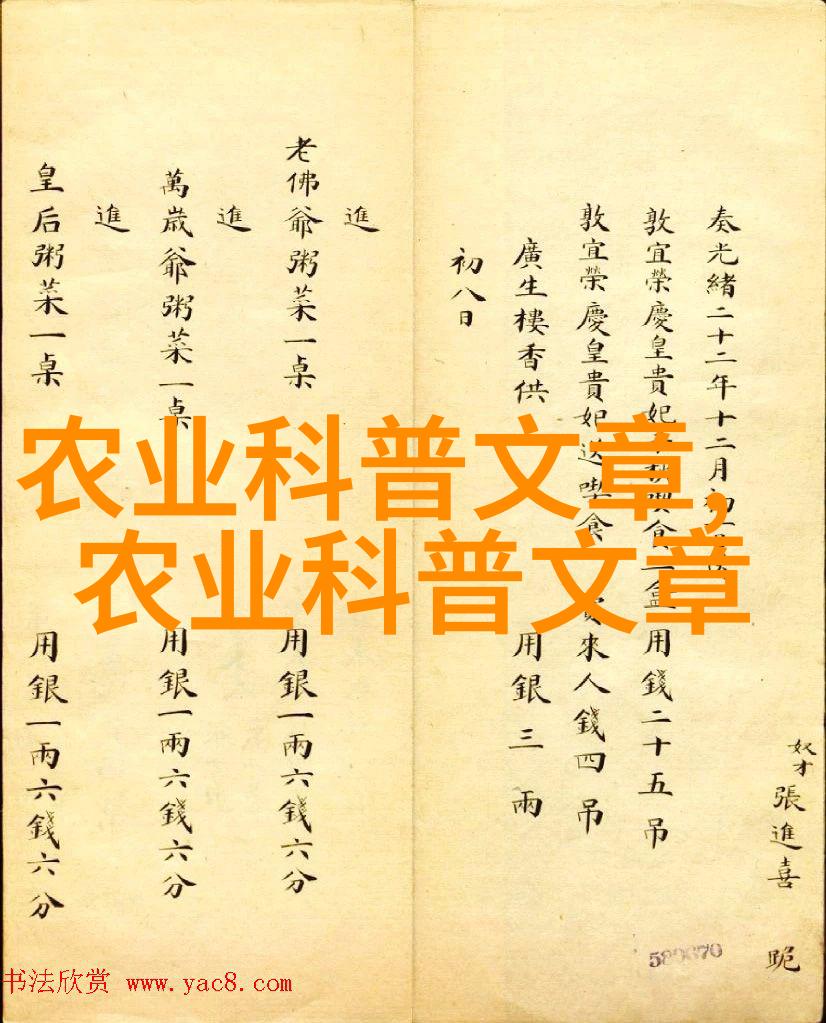 奴才張進喜 跪
奏光緒二十二年十二月初
敦宜榮慶皇貴妃 食一盒用錢二十五吊
敦宜榮慶皇貴妃送喫食 來人錢四吊
廣生樓香供 用銀三兩
初八日
進
老佛爺粥菜一桌 用銀一兩六錢六分
進
萬歲爺粥菜一桌 用銀一兩六錢六分
進
皇后粥菜一桌 用銀一兩六錢六分
农业科普文章,
农业科普文章
书法欣赏 www.yac8.com